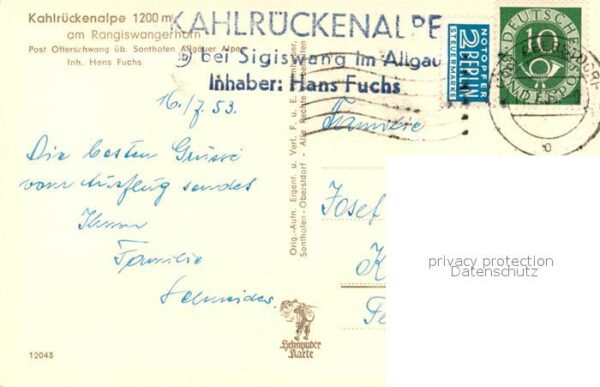 Kahlrückenalpe 1200 m
am Rangiswangerhorn
Post Ofterschwang üb. Sonthofen Allgäuer Alpen
Inh. Hans Fuchs
KAHLRÜCKENALPE
bei Sigiswang im Allgäu
Inhaber: Hans Fuchs
NOTOPFER
2 BERLIN
STEUERMARKE
DEUTSCHE
10
BUNDESPOST
16./7. 53.
Die besten Grüsse
vom Ausflug sendet
Ihnen
Familie
Schneider
Orig.-Aufn. Eigent. u. Verl. F. u. E.
Sonthofen-Oberstdorf - Alle Rechte
Familie
Josef
K
privacy protection
Datenschutz
Heimhuber
Karte
12043